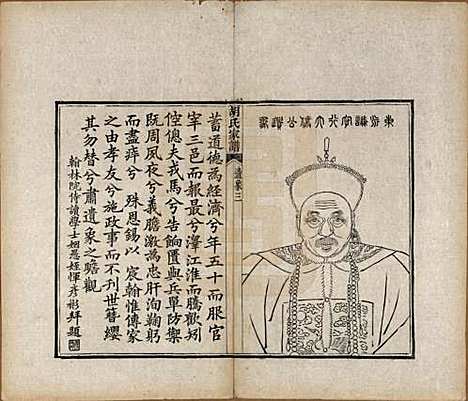 胡氏家譜
遺象三
蓄道德為經濟兮年五十而服官
宰三邑而報最兮澤江淮而騰歡矧
倥傯夫戎馬兮告餉匱與兵單防禦
既周夙夜兮義膽激為忠肝洵鞠躬
而盡瘁兮 殊恩錫以宸翰惟傳家
之由孝友兮施政事而不刊世簪纓
其勿替兮肅遺象之瞻觀
翰林院侍讀學士姻愚姪惲彥彬拜題